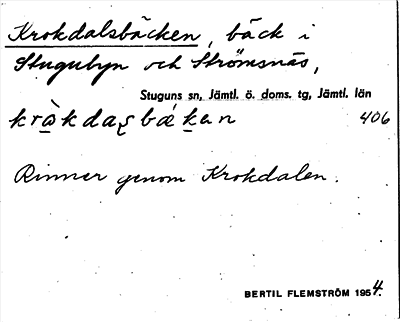 Krokdalsbäcken, bäck i
Stugubyn och Strömsnäs,
Stuguns sn, Jämtl. ö. doms. tg, Jämtl. län
406
Rinner genom Krokdalen.
BERTIL FLEMSTRÖM 1954.